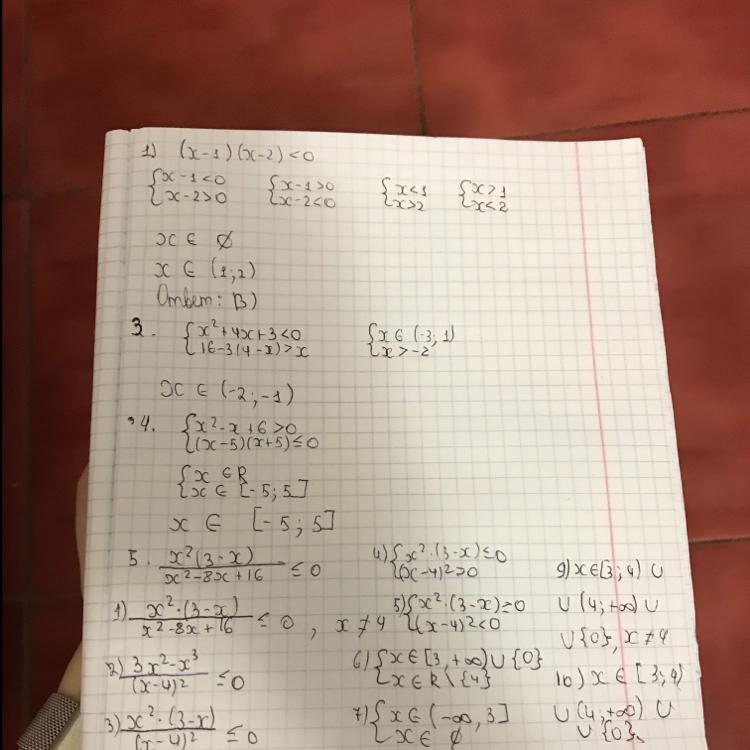 1) (x-1)(x-2)<0
{x-1<0 {x-1>0 {x<1 {x>1
{x-2>0 {x-2<0 {x>2 {x<2
x ∈ ∅
x ∈ (1;2)
Ответ: B)
3. {x²+4x+3<0 {x ∈ (-3; 1)
{16-3(4-x)>x {x>-2
x ∈ (-2;-1)
4. {x²-x+6>0
{(x-5)(x+5)≤0
{x ∈ R
{x ∈ [-5; 5]
x ∈ [-5; 5]
5. x²(3-x)/(x²-8x+16) ≤ 0
1) x²·(3-x)/(x²-8x+16) ≤ 0, x≠4
2) (3x²-x³)/(x-4)² ≤0
3) x²·(3-x)/(x-4)² ≤ 0
4) {x²·(3-x)≤0
{(x-4)²>0
5) {x²·(3-x)≥0
{(x-4)²<0
6) {x ∈ [3, +∞) ∪ {0}
{x ∈ R \ {4}
7) {x ∈ (-∞, 3]
{x ∈ ∅
9) x∈[3; 4) ∪
∪ (4;+∞) ∪
∪{0}, x≠4
10) x ∈ [3; 4)
∪ (4;+∞) ∪
∪ {0}